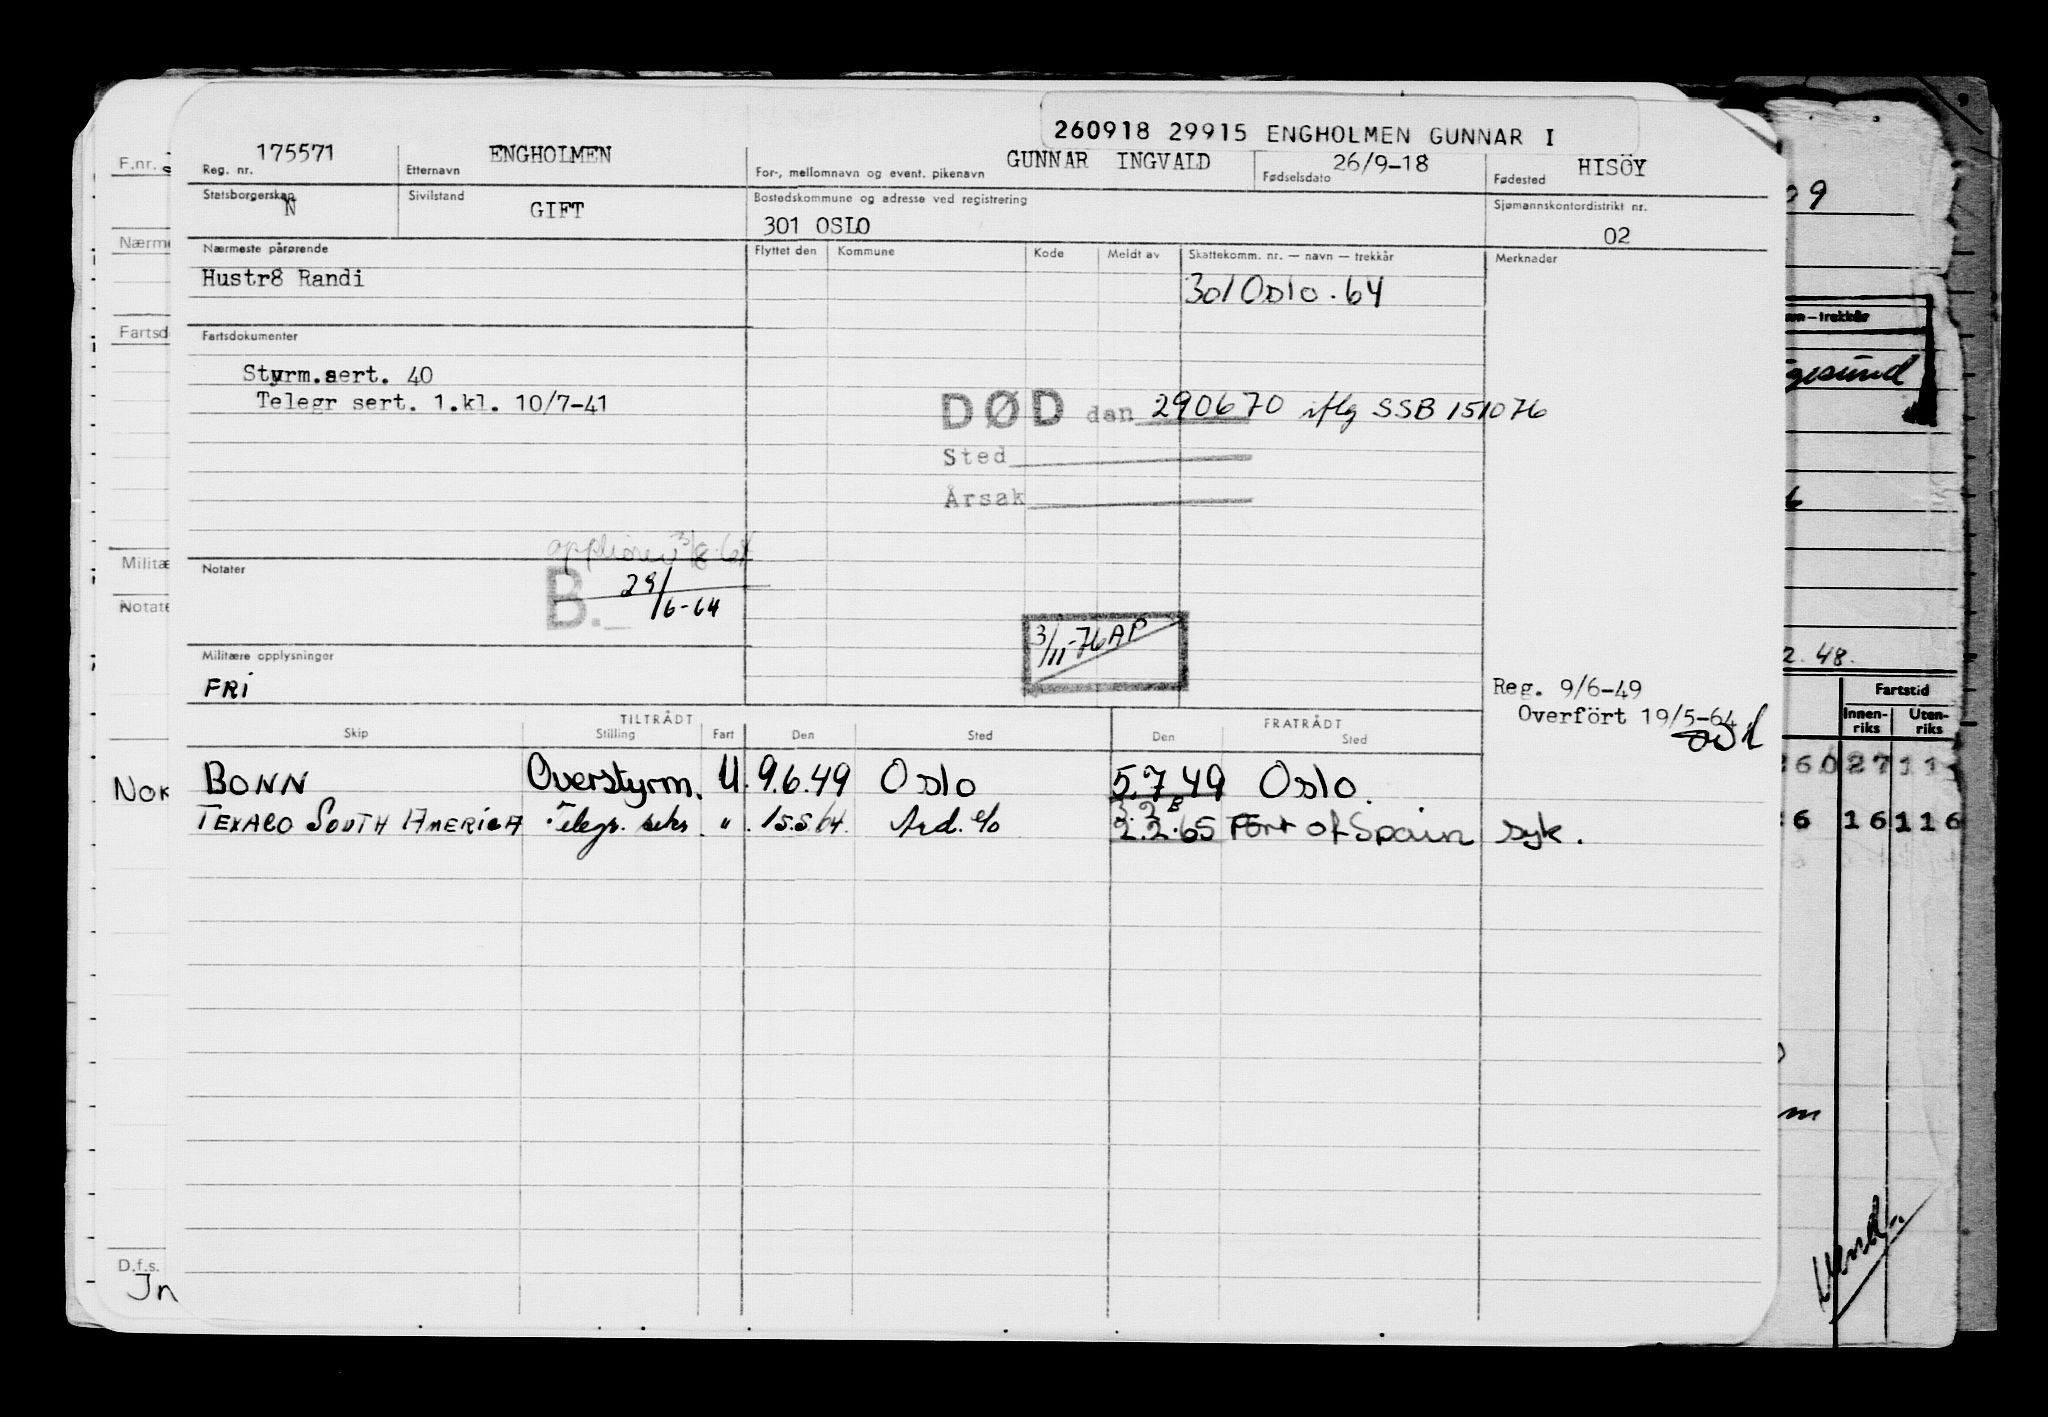 260918 29915 ENGHOLMEN GUNNAR I
F.nr.
Reg. nr. 175571
Etternavn ENGHOLMEN
For-, mellomnavn og event. pikenavn GUNNAR INGVALD
Fødselsdato 26/9-18
Fødested HISÖY
Statsborgerskap N
Sivilstand GIFT
Bostedskommune og adresse ved registrering
301 OSLO
Sjømannskontordistrikt nr.
02
Nærmeste pårørende
Hustr8 Randi
Flyttet den Kommune Kode Meldt av Skattekomm. nr. — navn — trekkår Merknader
301 Oslo . 64
Fartsdokumenter
Styrm.sert. 40
Telegr sert. 1.kl. 10/7-41
DØD den 290670 iflg SSB 151076
Sted
Årsak
3/8-64
Notater
B. 29/6-64
3/11-76 AP
Militære opplysninger
FRI
Reg. 9/6-49
Overfört 19/5-64
TILTRÅDT FRATRÅDT
Skip Stilling Fart Den Sted Den Sted
BONN Overstyrm. U. 9.6.49 Oslo 5.7.49 Oslo.
TEXACO SOUTH AMERICA Telegr. " 15.5.64. 2.2.65 Port of Spain syk.
Nærme
Fartsd
Militæ
Notate
NOR
D.f.s.
In
09
vn — trekkår
gesund
2. 48.
Fartstid
Innen-riks Uten-riks
260 27 11
26 16 116
m
Vend.